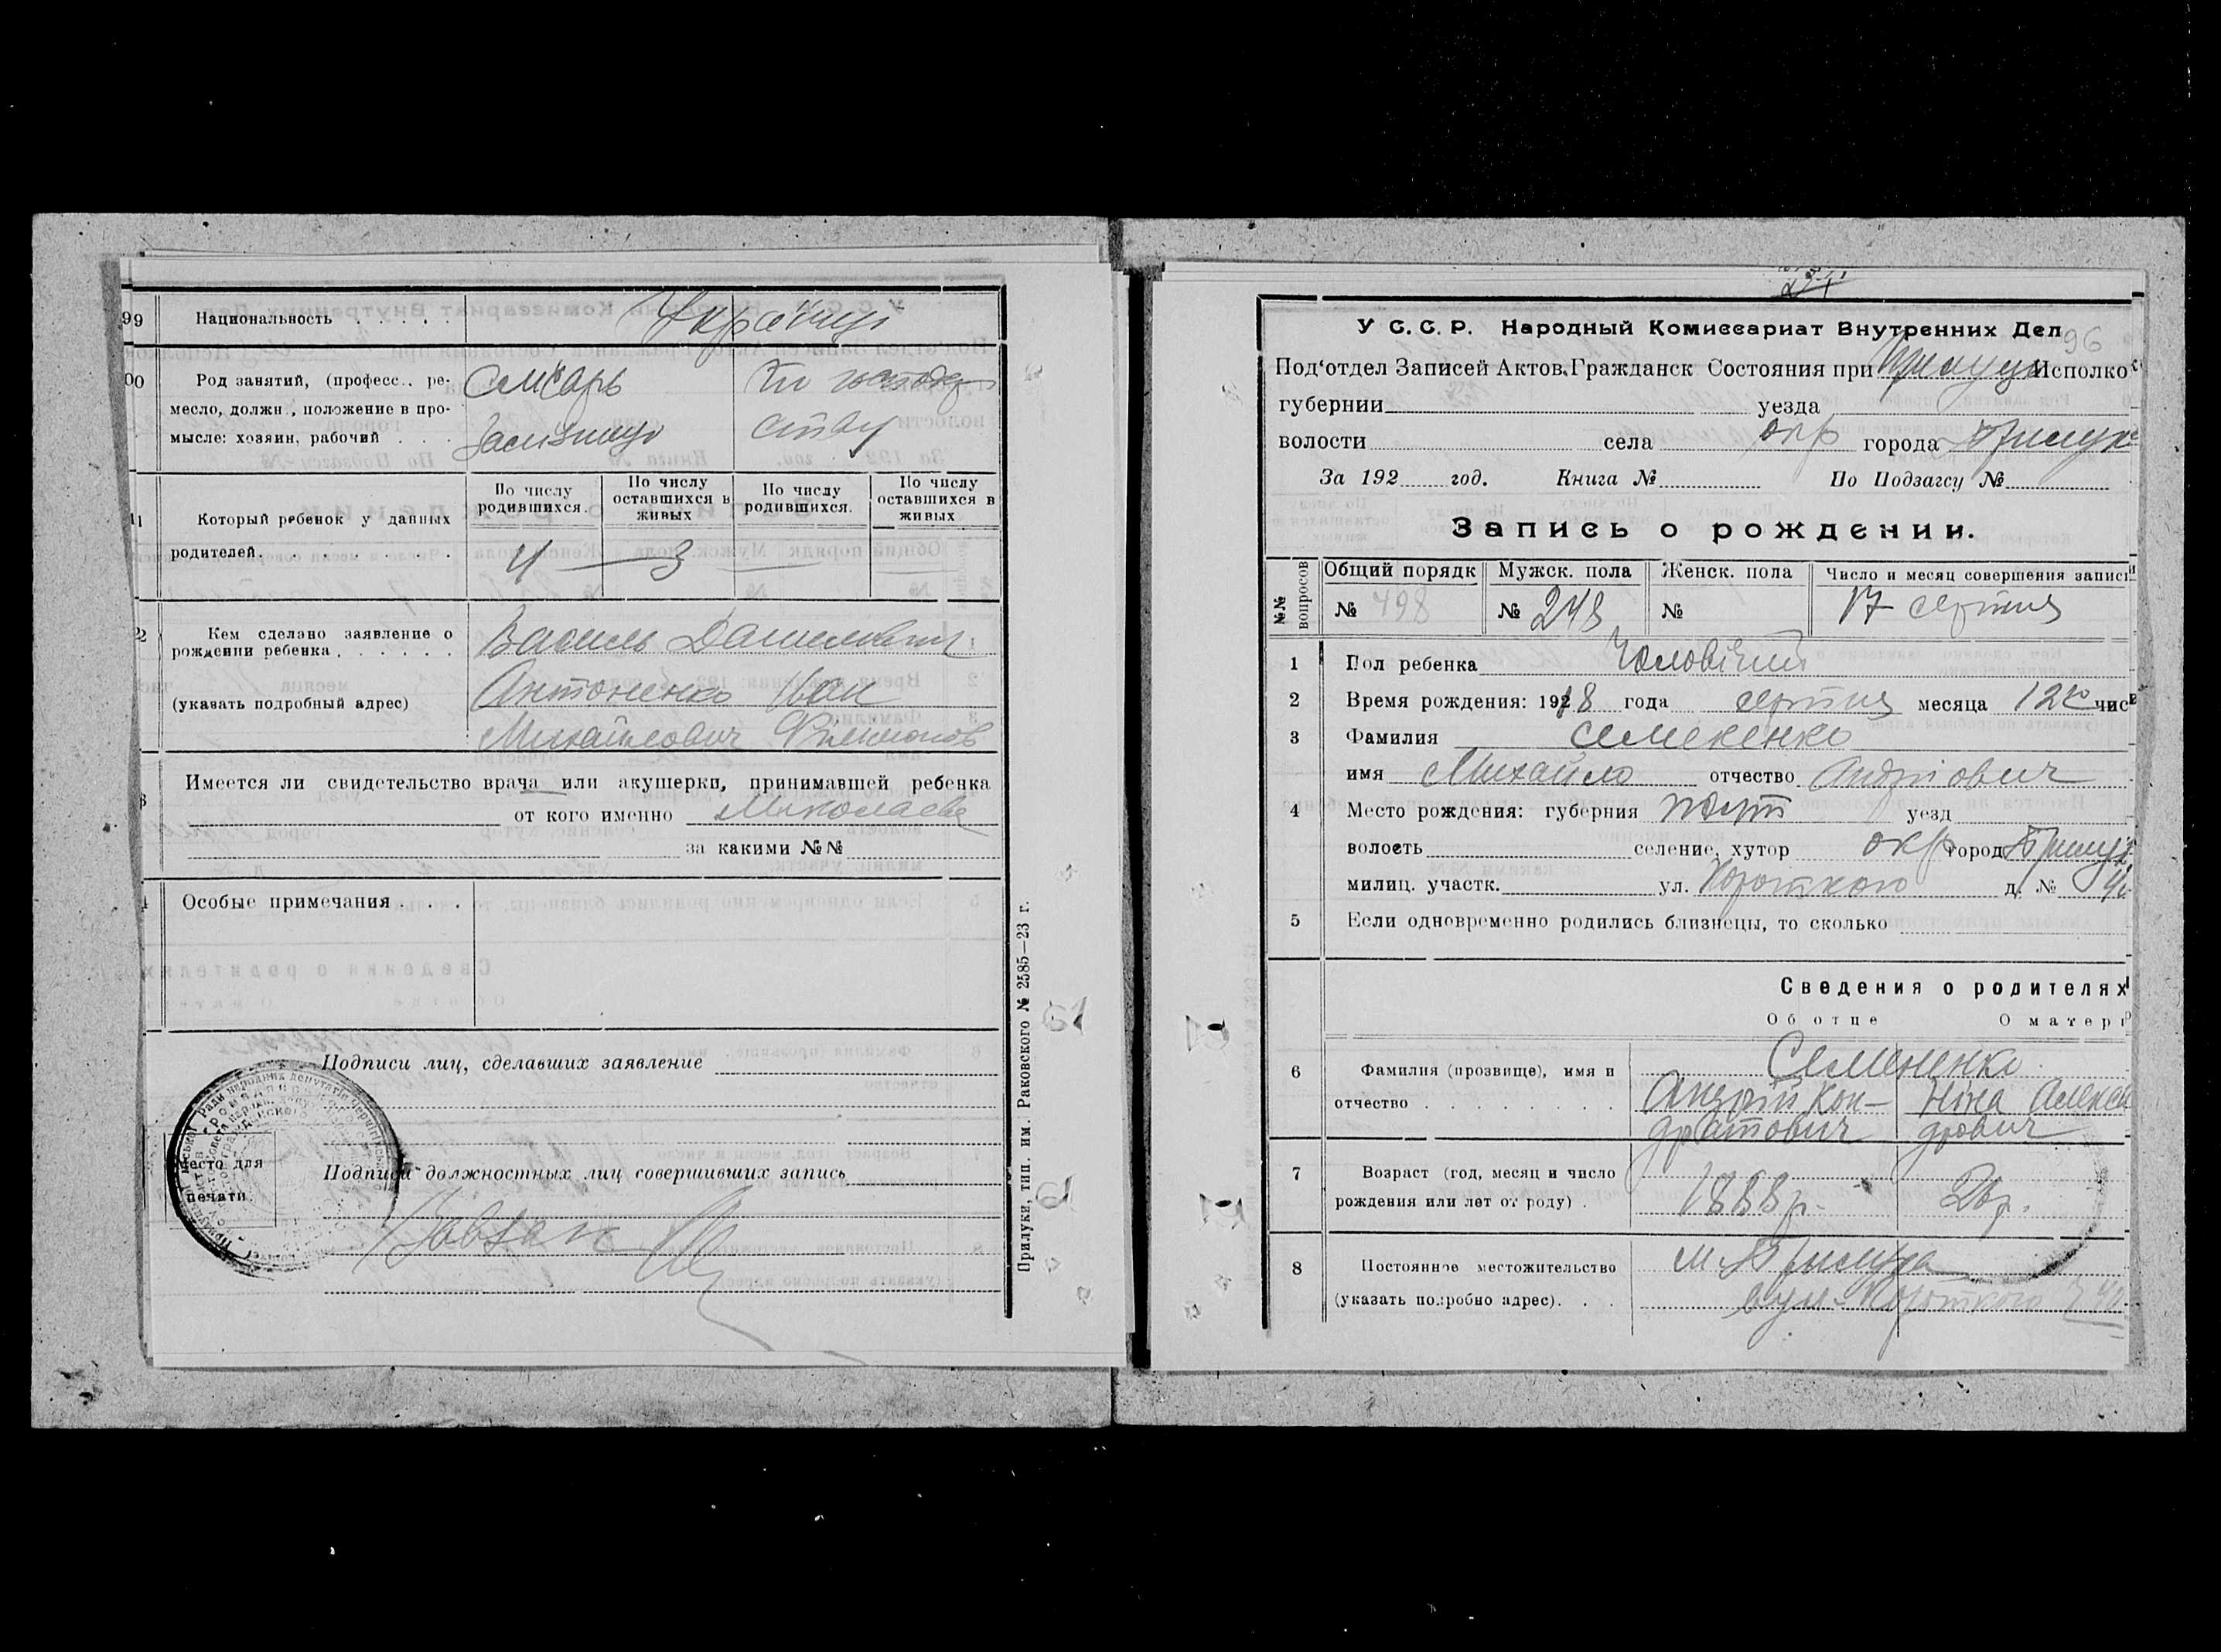 99 Национальность . . . . . Українці
Род занятий, (професс.. ре-
месло, должн., положение в про-
мысле: хозяин, рабочий . . .
Слюсарь
По господар
ству
Который ребенок у данных
родителей. . . . . . . .
По числу родившихся.
По числу оставшихся в живых
По числу родившихся.
По числу оставшихся в живых
4 — 3 — —
Кем сделано заявление о
рождении ребенка . . . . . .
(указать подробный адрес)
Василь Данилович
Антоненко Іван
Михайлович
Имеется ли свидетельство врача или акушерки, принимавшей ребенка
от кого именно Миколаева
за какими №№
Особые примечания . . .
Подписи лиц, сделавших заявление
Место для
печати.
Подписи должностных лиц совершивших запись
Прилуки, тип. им. Раковского № 2585—23 г.
96
У С. С. Р. Народный Комиссариат Внутренних Дел
Под'отдел Записей Актов Гражданск Состояния при Прилуцьк Исполко
губернии уезда
волости села окр города Прилук
За 192 год. Книга № По Подзагсу №
Запись о рождении.
№№ вопросов
Общий порядк Мужск. пола Женск. пола Число и месяц совершения записи
№ 498 № 248 № 17 серпня
1 Пол ребенка Чоловічий
2 Время рождения: 1918 года серпня месяца 12го чис
3 Фамилия Семененко
имя Михайло отчество Андріович
4 Место рождения: губерния Полт уезд
волость селение, хутор окр город Прилук
милиц. участк. ул. Короткого д. № 40
5 Если одновременно родились близнецы, то сколько
Сведения о родителях
Об отце О матери
6 Фамилия (прозвище), имя и
отчество . . . . . . . .
Семененко
Андрій Кон- Ніна Алекса
дратович дрович
7 Возраст (год, месяц и число
рождения или лет от роду) .
1888 р. 26 р.
8 Постоянное местожительство
(указать подробно адрес). . .
м. Прилука
вул. Короткого 40